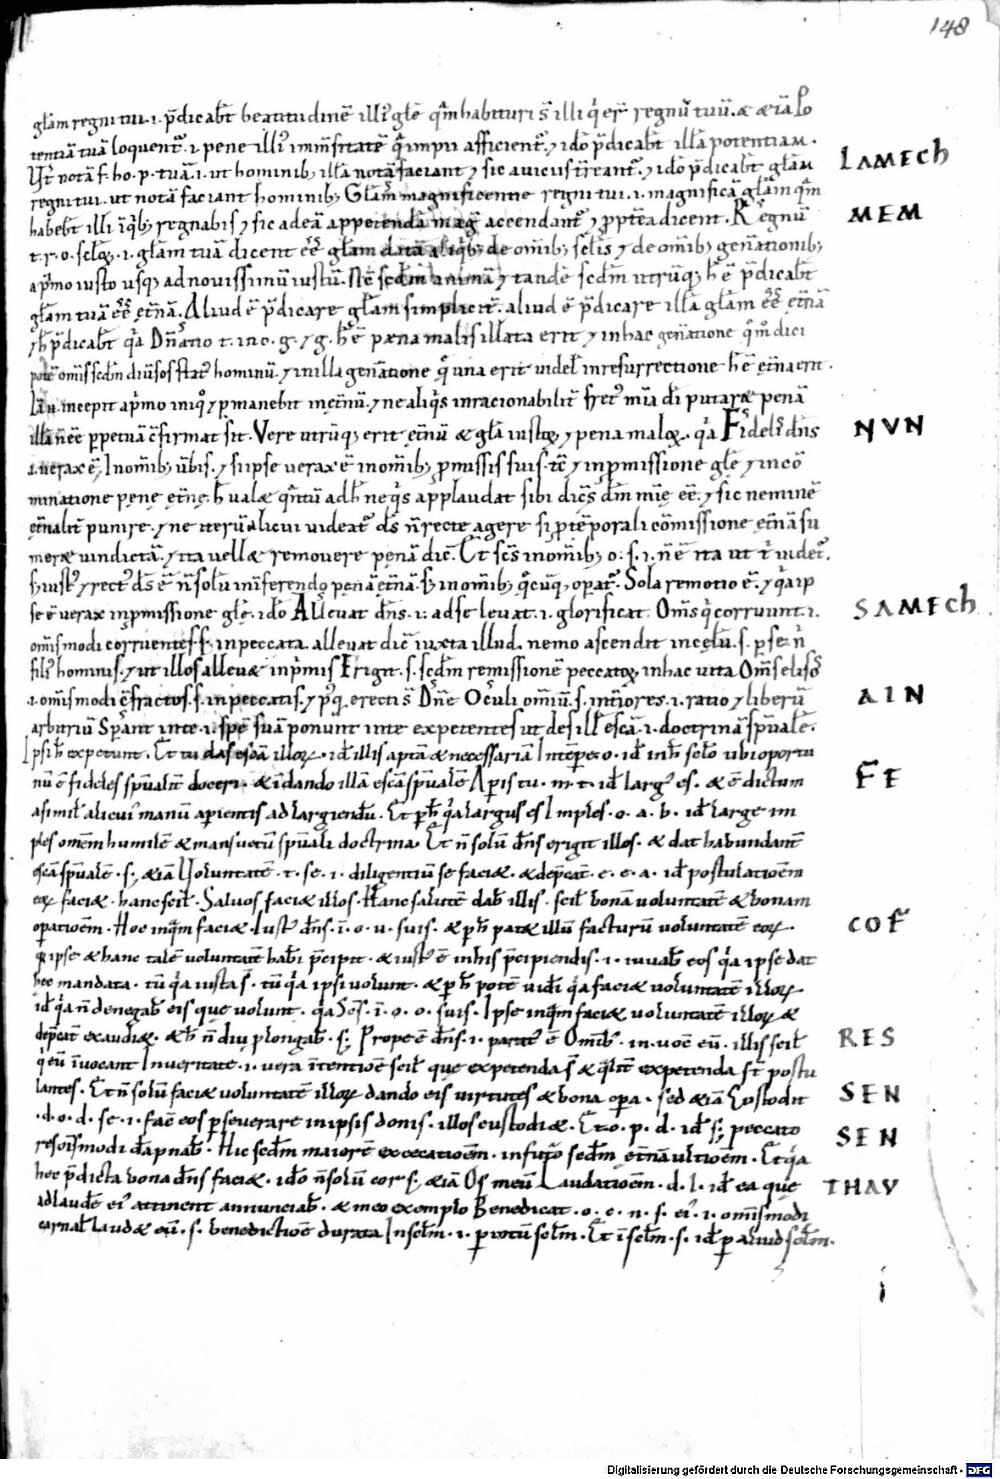 148
gl̄am regni tui .i. p̄dicab̄t beatitudinē illi᷒ gl̄e qm̄ habituri s̄ illi q̇ er̄ regnū tuū. & &iā po
tentiā tuā loquent᷑ .i. pene illi᷒ inm̄sitatē q̄ impii afficient᷑. ⁊ idō p̄dicab̄t illā potentiam.
Ut notā f. ho. p. tuā .i. ut hominib; illā notā faciant ⁊ sic auicus tr̄eant᷑. ⁊ idō p̄dicab̄t gl̄am
LAMECh
regni tui. ut notā faciant hominib; Gl̄am magnificenne regni tui .i. magnificā gl̄am qm̄
habeb̄t illi īq̇b; regnabis ⁊ sic adeā appetendā mag᷒ accendant᷑ ⁊ ppt̄ea dicent. Regnū
MEM
t. r. o. sclꝝ .i. gl̄am tuā dicent ēē gl̄am datā aliq̇b; de om̄ib; sclis ⁊ de om̄ib; gen̄ationib;
ap̄mo iusto usq; ad nouissimū iustū. Nē scdm̄ animā ⁊ tandē scdm̄ utrūq; h̄ ē p̄dicab̄t
gl̄am tuā ēē et̄nā. Aliud ē p̄dicare gl̄am simplicit̄. aliud ē p̄dicare illā gl̄am ēē et̄nā
⁊ h̄ p̄dicab̄t q̇a Dn̄atio t. in o. g. ⁊ g. h̄ ē pæna malis illata erit ⁊ in hac gen̄atione qm̄ dici
potē om̄is scdm̄ diūsos stat᷒ hominū. ⁊ in illa gen̄atione q̄ una erit uidel̄ in resurrectione h̄ ē et̄na erit.
incepit ap̄mo iniq᷒ ⁊ p̄manebit in et̄nū. ⁊ ne aliq̇s inracionabilit̄ fret᷒ mīa dī putar& penā
illā n̄ēē p̄petuā c̄firmat sit. Vere utrūq; erit et̄nū & gl̄a iustoꝝ ⁊ pena maloꝝ. q̇a Fidelis dn̄s
NVN
.i. uerax ē. In om̄ib; ūbis. ⁊ si ipse uerax ē in om̄ib; p̄missis suis. tc̄ ⁊ in p̄missione gl̄e ⁊ in cō
minatione penę et̄nę. h̄ ual& q̄ntū adh̄ ne q̇s applaudat sibi dicēs dm̄ mīę ēē. ⁊ sic neminē
et̄nalit̄ punire. ⁊ ne iterū alicui uideat᷑ ds̄ n̄ recte agere si p̄ tēporali cōmissione et̄nā su
mer& uindictā. ⁊ ita uell& remouere penā dic̄. Et sc̄s in om̄ib; o. s. .i. n̄ ē ita ut t᷒ uidet᷑.
s; iust᷒ ⁊ rect᷒ ds̄ ē n̄ solū in īferendo penā et̄nā. s; in om̄ib; q̄cūq; opat᷑. Sola remotio ē. ⁊ q̇a ip
se ē uerax in p̄missione gl̄e. idō Alleuat dn̄s .i. ad se leuat .i. glorificat. Om̄s q̇ corruunt .i.
SAMECh
om̄ismodi corruentes s. in peccata. alleuat dic̄ iuxta illud. nemo ascendit in celū. s. p̄ se. n̄
fili᷒ hominis. ⁊ ut illos alleu& inp̄mis Erigit. s. scdm̄ remissionē peccatoꝝ in hac uita Om̄s elisos
.i. om̄ismodi c̄fractos. s. in peccatis. ⁊ p᷒q; erecti s̄ Dn̄e Oculi om̄iū. s. int̄iores .i. ratio ⁊ liberū
AIN
arbitriū Sperant in te .i. spē suā ponunt in te expetentes ut des ill᷒ escā .i. doctrinā sp̄uale.
Ipsi h̄ expetunt. Et tu das escā illoꝝ. id̄ illis aptā & necessariā In tēpeo. id̄ in h̄ sclo ubi oportu
nū ē fideles sp̄ualit̄ doceri. & idando illā escā sp̄ualē Aperis tu. m. t. id̄ larg᷒ es. & ē dictum
FE
a simil̄ alicui᷒ manū aperientis ad largiendū. Et p̄ h̄ q̇a largus es Imples. o. a. b. id̄ large im
ples omem humilē & mansuetū sp̄uali doctrina. Et n̄ solū dn̄s erigit illos. & dat habundant̄
escā sp̄ualē. s; &iā Voluntatē. t. se. .i. diligentiū se faci&. & dep̄cat̄. e. e. a. id̄ postulatioēm
eoꝝ faci&. hanc scil̄. Saluos faci& illos. Hanc salutē dab̄ illis. scil̄ bonā uoluntatē & bonam
opatioēm. Hoc inq̄m faci& Iust᷒ dn̄s. .i. o. u. suis. & p̄ h̄ pat& illū facturū uoluntatē eoꝝ.
COF
q̇ ipse & hanc talē uoluntatē hab̄i p̄cipit. & iust᷒ ē in his p̄cipiendis. .i. iuuab̄ eos q̇a ipse dat
hec mandata. tū q̇a iusta s̄. tū q̇a ipsi uolunt. & p̄ h̄ potē uidi q̇a faci& uoluntatē illoꝝ
id̄ q̇a n̄ denegab̄ eis que uolunt. q̇a Scs̄. i. o. o. suis. Ipse inq̄m faci& uoluntatē illoꝝ &
dep̄cat̄ exaudi&. & h̄ n̄ diu plongab̄. s; Prope ē dn̄s .i. parat᷒ ē Omib᷒. in. uoē eū. illis scil̄
RES
q̇ eū īuocant In ueritate .i. uera ītentioē scil̄ que expetenda s̄ & q̄lit̄ expetenda st̄ postu
lantes. Et n̄ solū faci& uoluntatē illoꝝ dando eis uirtutes & bona opa. sed &iā Custodit
SEN
.d. o. d. se .i. faē eos p̄seuerare in ipsis donis. illos custodi&. Et o. p. d. id̄ s; peccato
SEN
res oīsmodi dāpnab̄. Hic scdm̄ maiorē excecatioēm. in fuꞇo scdm̄ et̄nā ultioēm. Et q̇a
hec p̄dicta bona dn̄s faci&. idō n̄ solū cor s; &iā Os meū Laudatioēm. d. l. id̄ ea que
THAV
ad laudē ei᷒ attinent annunciab̄. & meo exemplo Benedicat. o. c. n. s. ei᷒ .i. om̄ismodi
carnal̄ laud& eū. s. benedictioē durata In sclm̄. .i. p̄ totū sclm̄. Et ī sclm̄. s. id̄ p̄ aliud sclm̄.
i
Digitalisierung gefördert durch die Deutsche Forschungsgemeinschaft - DFG